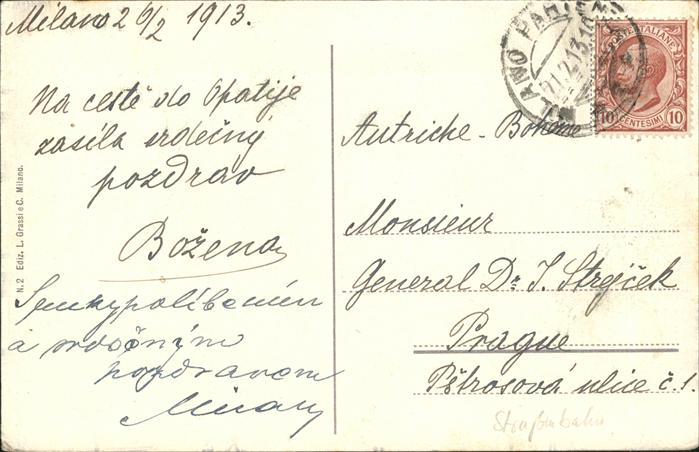 Milano 20/2 1913.
Na cestě do Opatije
zasílá srdečný
pozdrav
Božena
S
a srdečným
pozdravem
N. 2 Ediz. L. Grassi e C. Milano.
MILANO PARTENZA
21.2.13.
POSTE ITALIANE
10 CENTESIMI 10
Autriche-Bohême
Monsieur
General Dr J.
Prague
Pštrosová ulice č 1.